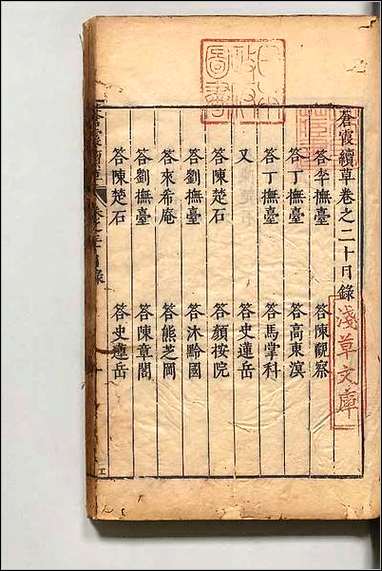 蒼霞續草卷之二十目錄
答李撫臺　答陳觀察
答丁撫臺　答高東溟
答丁撫臺　答馬掌科
又　答史蓮岳
答陳楚石　答顏按院
答劉撫臺　答沐黔國
答來希庵　答熊芝岡
答劉撫臺　答陳章閣
答陳楚石　答史蓮岳
淺草文庫